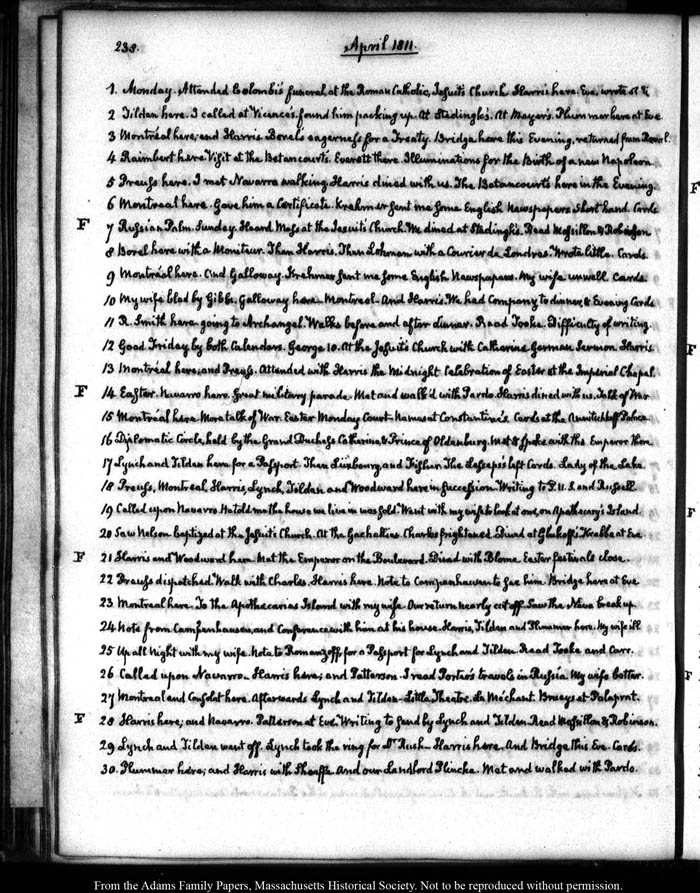 238.
April 1811.
1. Monday. Attended Colombi's funeral, at the Roman Catholic, Jesuits Church. Harris here. Eve. wrote
2 Tilden here. I called at Vicence's. found him packing up. At Stedingk's. At Mayer's. Plummer here at Eve
3 Montréal here; and Harris. Borel's eagerness for a Treaty. Bridge here this Evening, returned from Revel.
4 Raimbert here. Visit at the Betancourt's. Everett there. Illuminations for the Birth of a new Napoleon.
5 Preuss here. I met Navarro walking. Harris dined with us. The Betancourts here in the Evening.
6 Montreal here. Gave him a Certificate. Krehmer sent me some English Newspapers. Short hand. Cards
F
7 Russian Palm. Sunday. Heard Mass at the Jesuits Church. We dined at Stedingk's. Read Massillon & Robinson
8 Borel here with a Moniteur. Then Harris. Then Lohman with a Courier de Londres. Wrote little. Cards
9 Montréal here. And Galloway. Krehmer sent me some English Newspapers. My wife unwell. Cards.
10 My wife bled by Gibbs. Galloway here. Montreal. And Harris. We had Company to dinner, & Evening Cards
11 R. Smith here going to Archangel. Walks before and after dinner. Read Tooke. Difficulty of writing.
12 Good Friday by both Calendars. George 10. At the Jesuits Church with Catherine German Sermon. Harris
13 Montréal here; and Preuss. Attended with Harris the Midnight Celebration of Easter at the Imperial Chapel.
F
14 Easter. Navarro here. Great military parade. Met and walk'd with Pardo. Harris dined with us. Talk of War
15 Montréal here. More talk of War. Easter Monday Court. Names at Constantine's. Cards at the Palace
16 Diplomatic Circle, held by the Grand Duchess Catherine, & Prince of Oldenburg. Met & spoke with the Emperor there.
17 Lynch and Tilden here for a Passport. Then Luxbourg, and Fisher. The Lesseps's left Cards. Lady of the Lake.
18 Preuss, Montreal, Harris, Lynch, Tilden, and Woodward here in succession. Writing to P.U.S. and Russell
19 Called upon Navarro. He told me the house we live in was sold. Went with my wife to look at one, on Apothecary's Island
20 Saw Nelson baptized at the Jesuits Church. At the Katchalkies. Charles frightened. Dined at Gluhoff's. Krabbe at Eve
F
21 Harris and Woodward here. Met the Emperor on the Boulevard. Dined with Blome. Easter festivals close.
22 Preuss dispatched. Walk with Charles. Harris here. Note to Campenhausen to see him. Bridge here at Eve
23 Montreal here. To the Apothecaries Island with my wife. Our return nearly cut off. Saw the Neva break up.
24 Note from Campenhausen, and Conference with him at his house. Harris, Tilden and Plummer here. My wife ill
25 Up all Night with my wife. Note to Romanzoff for a Passport for Lynch and Tilden. Read Tooke and Carr.
26 Called upon Navarro. Harris here; and Patterson. I read Porter's travels in Russia. My wife better.
27 Montreal and Consolat here. Afterwards Lynch and Tilden. Little Theatre. Le Méchant. Brueys at Palaprat.
F
28 Harris here; and Navarro. Patterson at Eve. Writing to send by Lynch and Tilden. Read Massillon & Robinson.
29 Lynch and Tilden went off. Lynch took the ring for Dr. Rush. Harris here. And Bridge this Eve. Cards.
30. Plummer here; and Harris with Schaeffe. And our Landlord Plincke. Met and walked with Pardo.
From the Adams Family Papers, Massachusetts Historical Society. Not to be reproduced without permission.